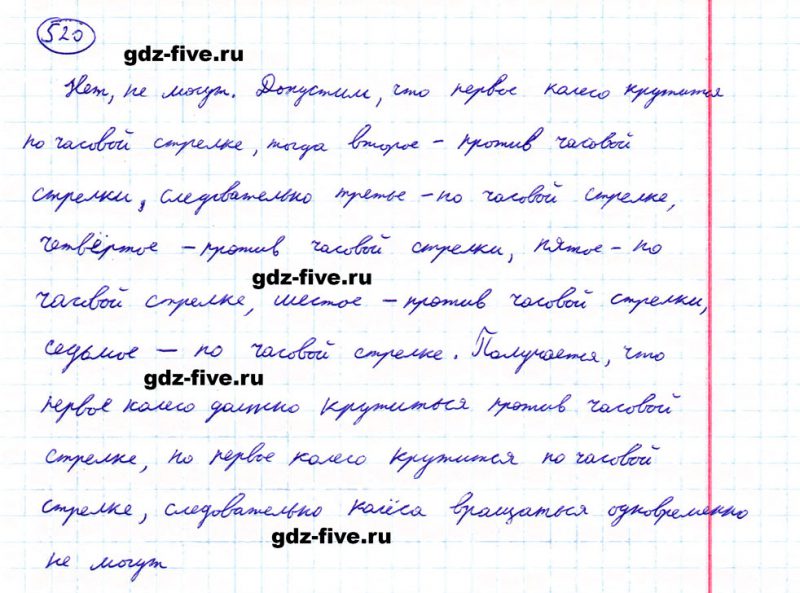 520
gdz-five.ru
Нет, не могут. Допустим, что первое колесо крутится
по часовой стрелке, тогда второе - против часовой
стрелки, следовательно третье - по часовой стрелке,
четвёртое - против часовой стрелки, пятое - по
gdz-five.ru
часовой стрелке, шестое - против часовой стрелки,
седьмое - по часовой стрелке. Получается, что
gdz-five.ru
первое колесо должно крутиться против часовой
стрелке, но первое колесо крутится по часовой
стрелке, следовательно колёса вращаться одновременно
gdz-five.ru
не могут